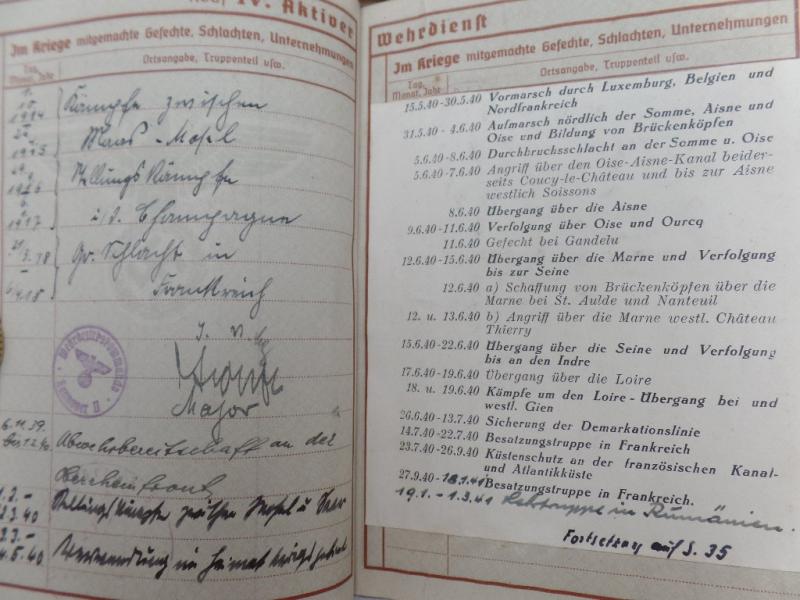 IV. Aktiver
Im Kriege mitgemachte Gefechte, Schlachten, Unternehmungen
Tag, Monat, Jahr
Ortsangabe, Truppenteil usw.
1914
Kämpfe zwischen
1915
Maas - Mosel
Stellungs Kämpfe
1917
i/d. Champagne
Gr. Schlacht in
Frankreich
J. V.
Major
Wehrbezirkskommando
Hannover II
6.11.39.
Abwehrbereitschaft an der
Oberrheinfront
Stellungskämpfe zwischen Mosel u. Saar
2.3.40
Verwendung im Heimatkriegsgebiet
4.5.40
Wehrdienst
Im Kriege mitgemachte Gefechte, Schlachten, Unternehmungen
Tag, Monat, Jahr
Ortsangabe, Truppenteil usw.
15.5.40-30.5.40 Vormarsch durch Luxemburg, Belgien und
Nordfrankreich
31.5.40 - 4.6.40 Aufmarsch nördlich der Somme, Aisne und
Oise und Bildung von Brückenköpfen
5.6.40-8.6.40 Durchbruchsschlacht an der Somme u. Oise
5.6.40-7.6.40 Angriff über den Oise-Aisne-Kanal beider-
seits Coucy-le-Château und bis zur Aisne
westlich Soissons
8.6.40 Übergang über die Aisne
9.6.40-11.6.40 Verfolgung über Oise und Ourcq
11.6.40 Gefecht bei Gandelu
12.6.40-15.6.40 Übergang über die Marne und Verfolgung
bis zur Seine
12.6.40 a) Schaffung von Brückenköpfen über die
Marne bei St. Aulde und Nanteuil
12. u. 13.6.40 b) Angriff über die Marne westl. Château
Thierry
15.6.40-22.6.40 Übergang über die Seine und Verfolgung
bis an den Indre
17.6.40-19.6.40 Übergang über die Loire
18. u. 19.6.40 Kämpfe um den Loire-Übergang bei und
westl. Gien
26.6.40-13.7.40 Sicherung der Demarkationslinie
14.7.40-22.7.40 Besatzungstruppe in Frankreich
23.7.40-26.9.40 Küstenschutz an der französischen Kanal-
und Atlantikküste
27.9.40-18.1.41 Besatzungstruppe in Frankreich.
19.1. - 1.3.41 Lehrtruppe in Rumänien.
Fortsetzung auf S. 35